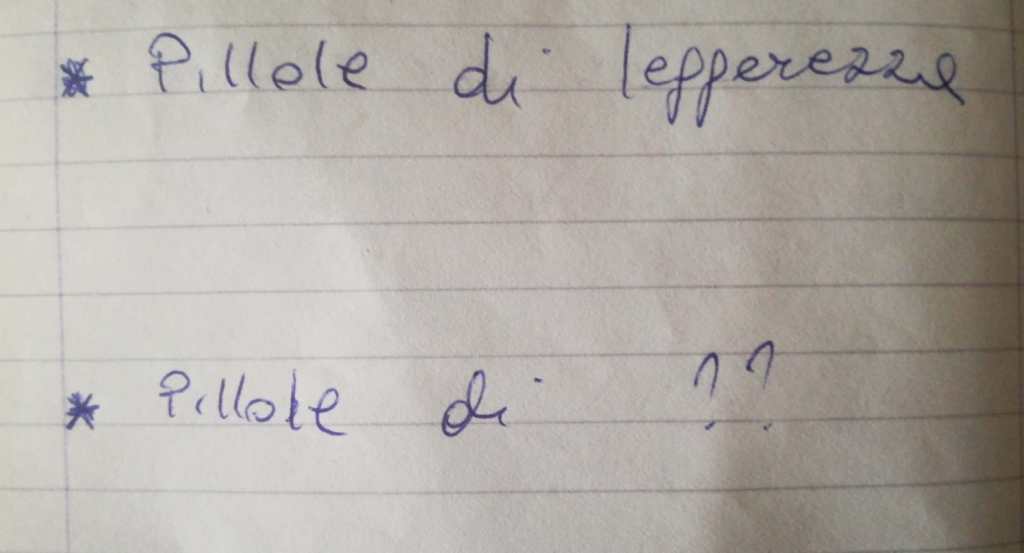 * Pillole di leggerezza
* Pillole di ??